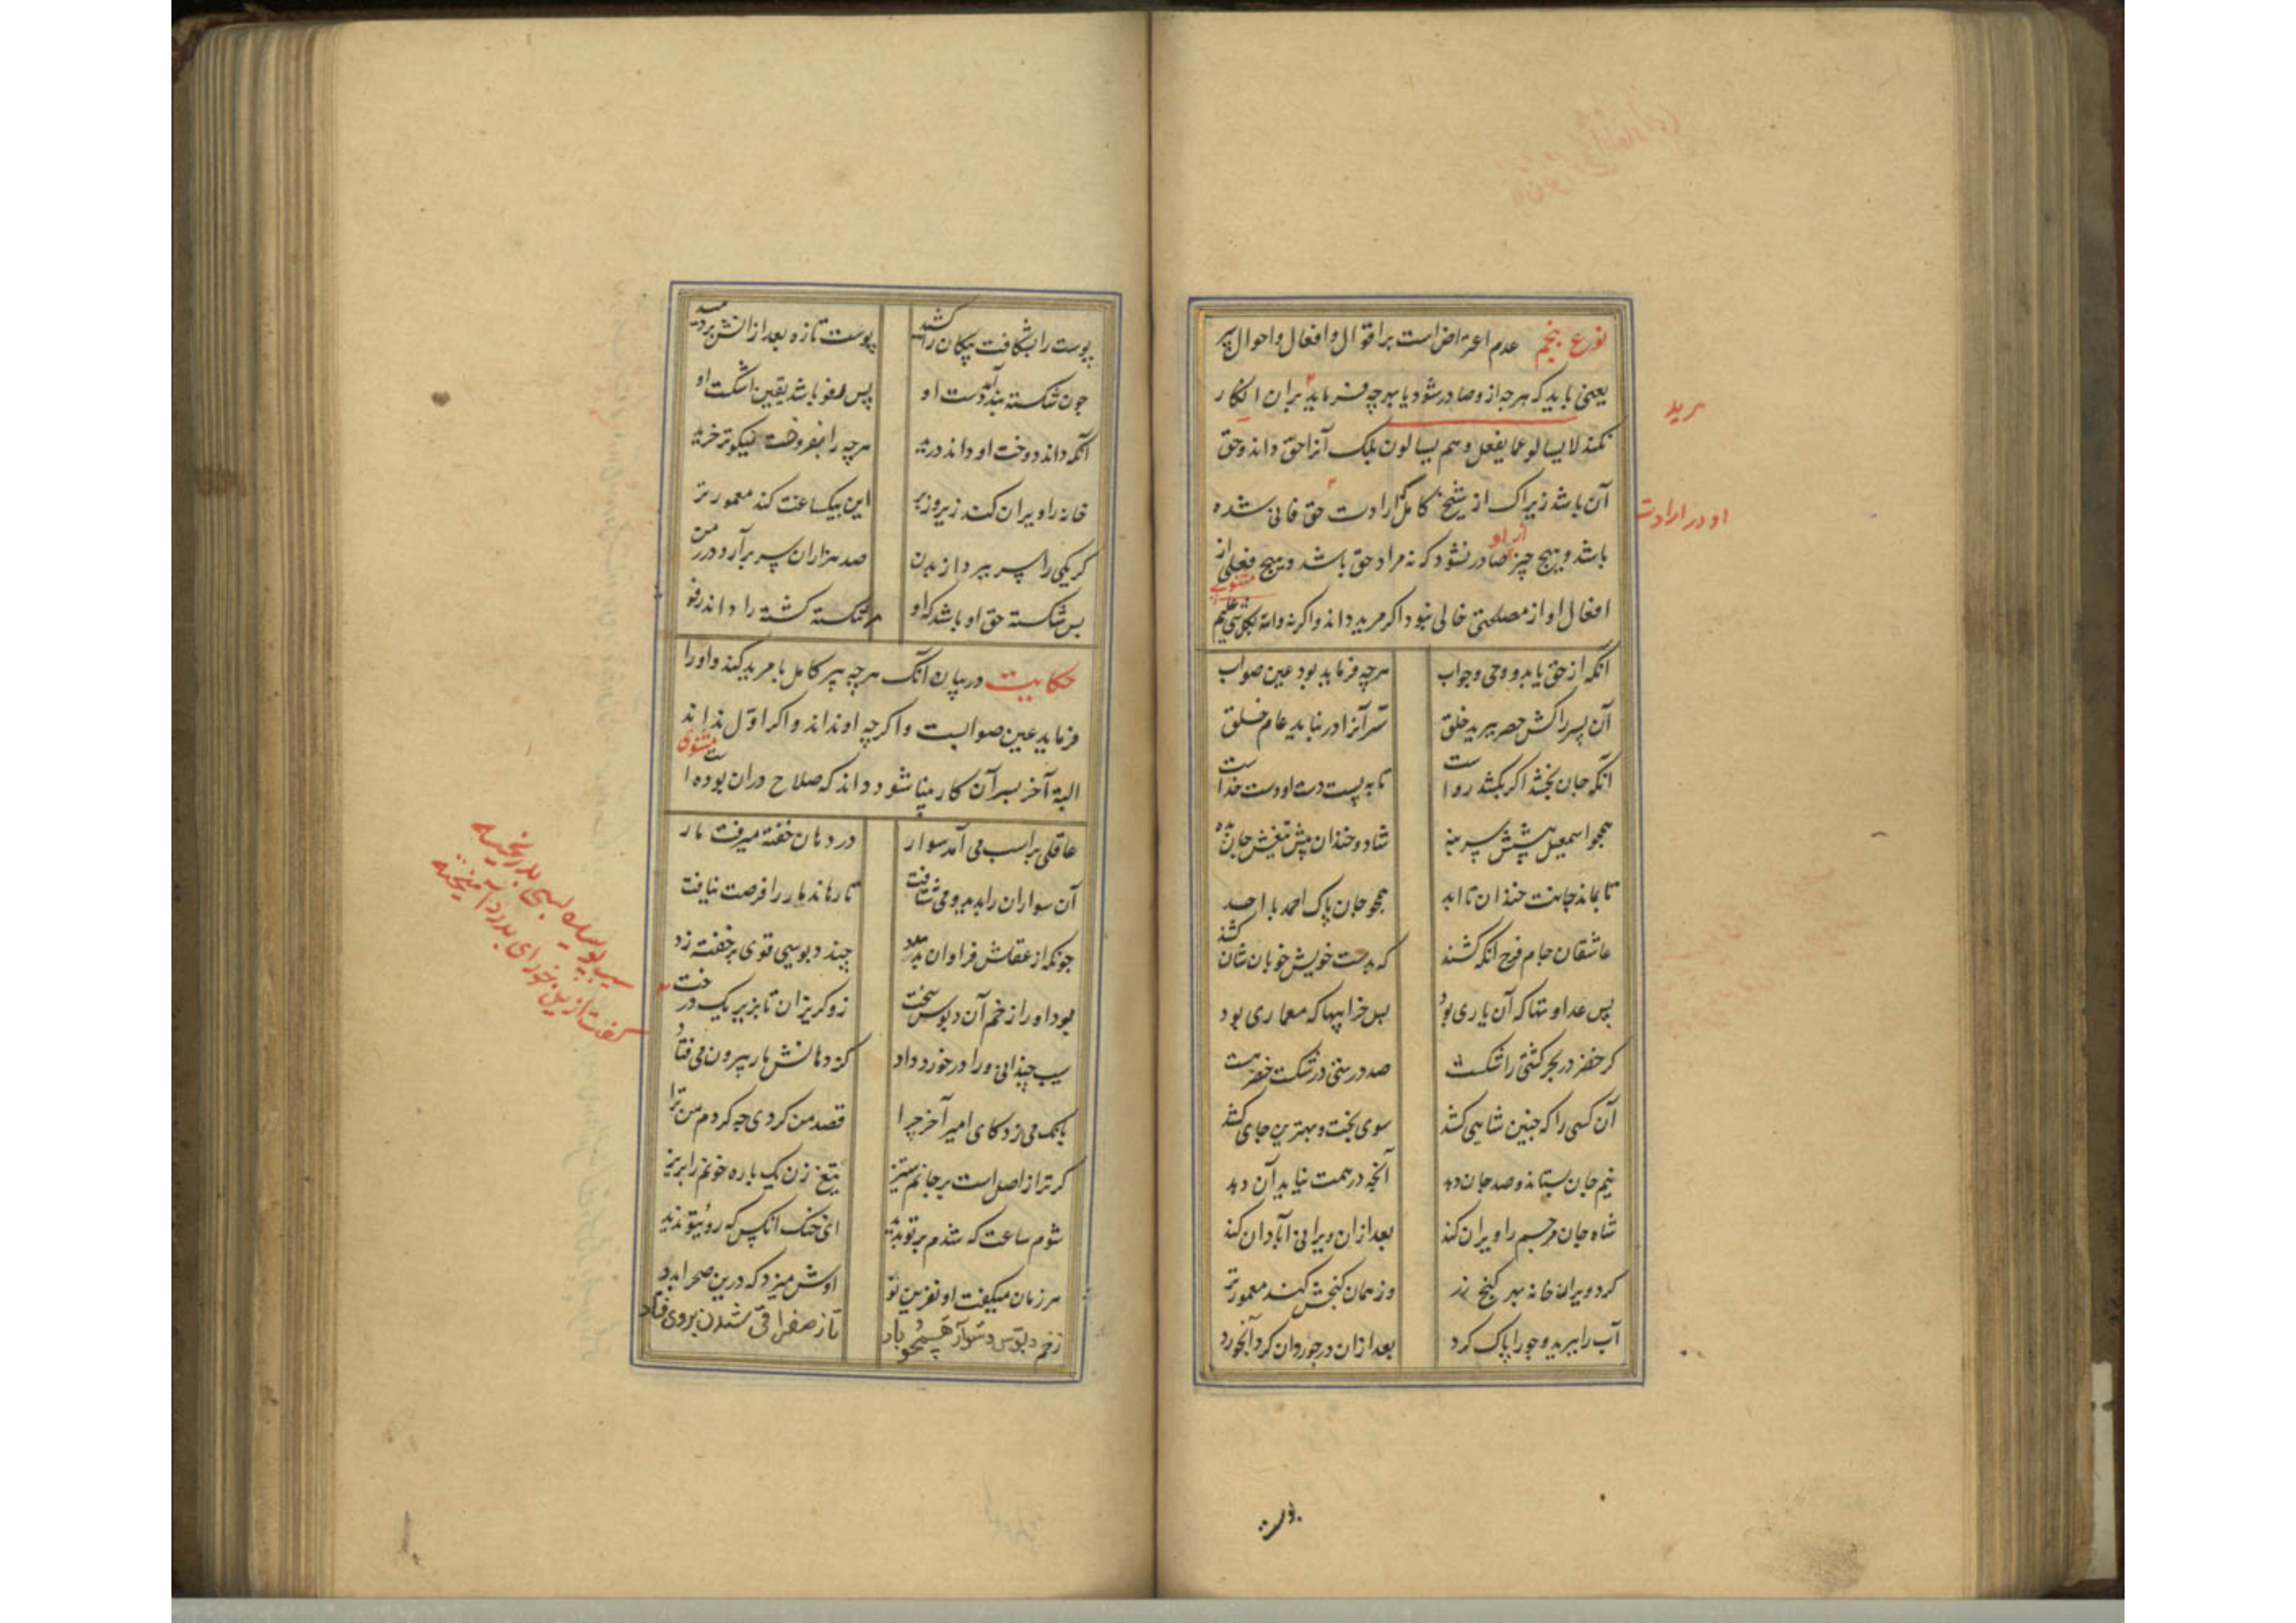 نوع پنجم عدم اعتراض است بر اقوال و افعال و احوال پیر
یعنی باید که هرچه ازو صادر شود یا بهرچه فرماید بران انکار
مرید
نکند لا یسالو عما یفعل و هم یسالون بلک آنرا حق داند و حق
آن باشد زیراک از شیخ کامل ارادت حق فانی شده
او در ارادت
باشد و هیچ چیز از او صادر نشود که نه مراد حق باشد و هیچ فعلی از
افعال او از مصلحتی خالی نبود اگر مرید داند و اگر نه والله بکل شی علیم
مثنوی
آنکه از حق یابد و وحی و جواب هرچه فرماید بود عین صواب
آن پسر را کش خضر ببرید خلق سر آنرا در نیابد عام خلق
آنکه جان بخشد اگر بکشد رواست نایبست دست او دست خداست
همچو اسمعیل پیشش سر بنه شاد و خندان پیش تیغش جان بده
تا بماند جانت خندان تا ابد همچو جان پاک احمد با احد
عاشقان جام فرح آنکه کشند که بدست خویش خوبان شان کشند
پس عداوتها که آن یاری بود بس خرابیها که معماری بود
گر خضر در بحر کشتی را شکست صد درستی در شکست خضر هست
آن کسی را که چنین شاهی کشد سوی بخت و بهترین جای کشد
نیم جان بستاند و صد جان دهد آنچه در همت نیاید آن دهد
شاه جان مر جسم را ویران کند بعد ازان ویرانی آبادان کند
کرد ویران خانه بهر گنج زر وز همان گنجش کند معمورتر
آب را ببرید و جو را پاک کرد بعد ازان در جو روان کرد آبخورد
پوست
پوست را بشکافت پیکان را کشید پوست تازه بعد ازانش بر دمید
چون شکسته بند آمد دست او پس رفو باشد یقین اشکست او
آنکه داند دوخت او داند درید هرچه را بفروخت نیکوتر خرید
خانه را ویران کند زیر و زبر این بیکساعت کند معمورتر
گر یکی را سر ببرد از بدن صد هزاران سر بر آرد در زمن
پس شکسته حق او باشد که او مر شکسته گشته را داند رفو
حکایت در بیان آنک هرچه پیر کامل با مرید کند و او را
فرماید عین صوابست و اگرچه او نداند و اگر اول نداند
البته آخر بسر آن کار بینا شود و داند که صلاح دران بوده است
مثنوی
عاقلی بر اسب می آمد سوار در دهان خفته میرفت مار
آن سوار آن را بدید و می شتافت تا رهاند مار را فرصت نیافت
چونکه از عقلش فراوان بد مدد چند دبوسی قوی بر خفته زد
بود او را زخم آن دبوس سخت زو گریزان تا بزیر یک درخت
سیب پوسیده بسی بد ریخته
گفت ازین خور ای بدرد آمیخته
سیب چندانی ورا در خورد داد کز دهانش باز بیرون می فتاد
بانک می زد کای امیر آخر چرا قصد من کردی چه کردم من ترا
گر ترا از اصل است بر جانم ستیز تیغ زن یکباره خونم را بریز
شوم ساعت که شدم بر تو پدید ای خنک آنکس که روی تو ندید
هر زمان میگفت او نفرین نو اوش میزد که درین صحرا بدو
زخم دبوس و سوار همچو باد تا ز صفرا قی شدن بروی فتاد